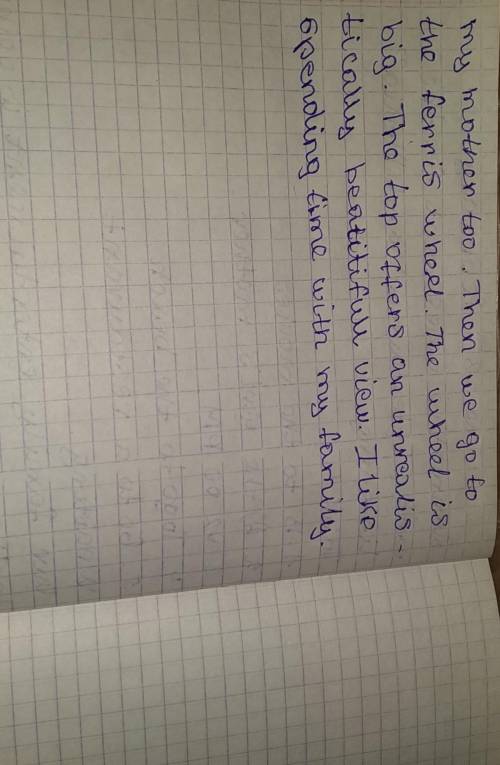 my mother too. Then we go to
the ferris wheel. The wheel is
big. The top offers an unrealis-
tically beatitifull view. I like
spending time with my family.